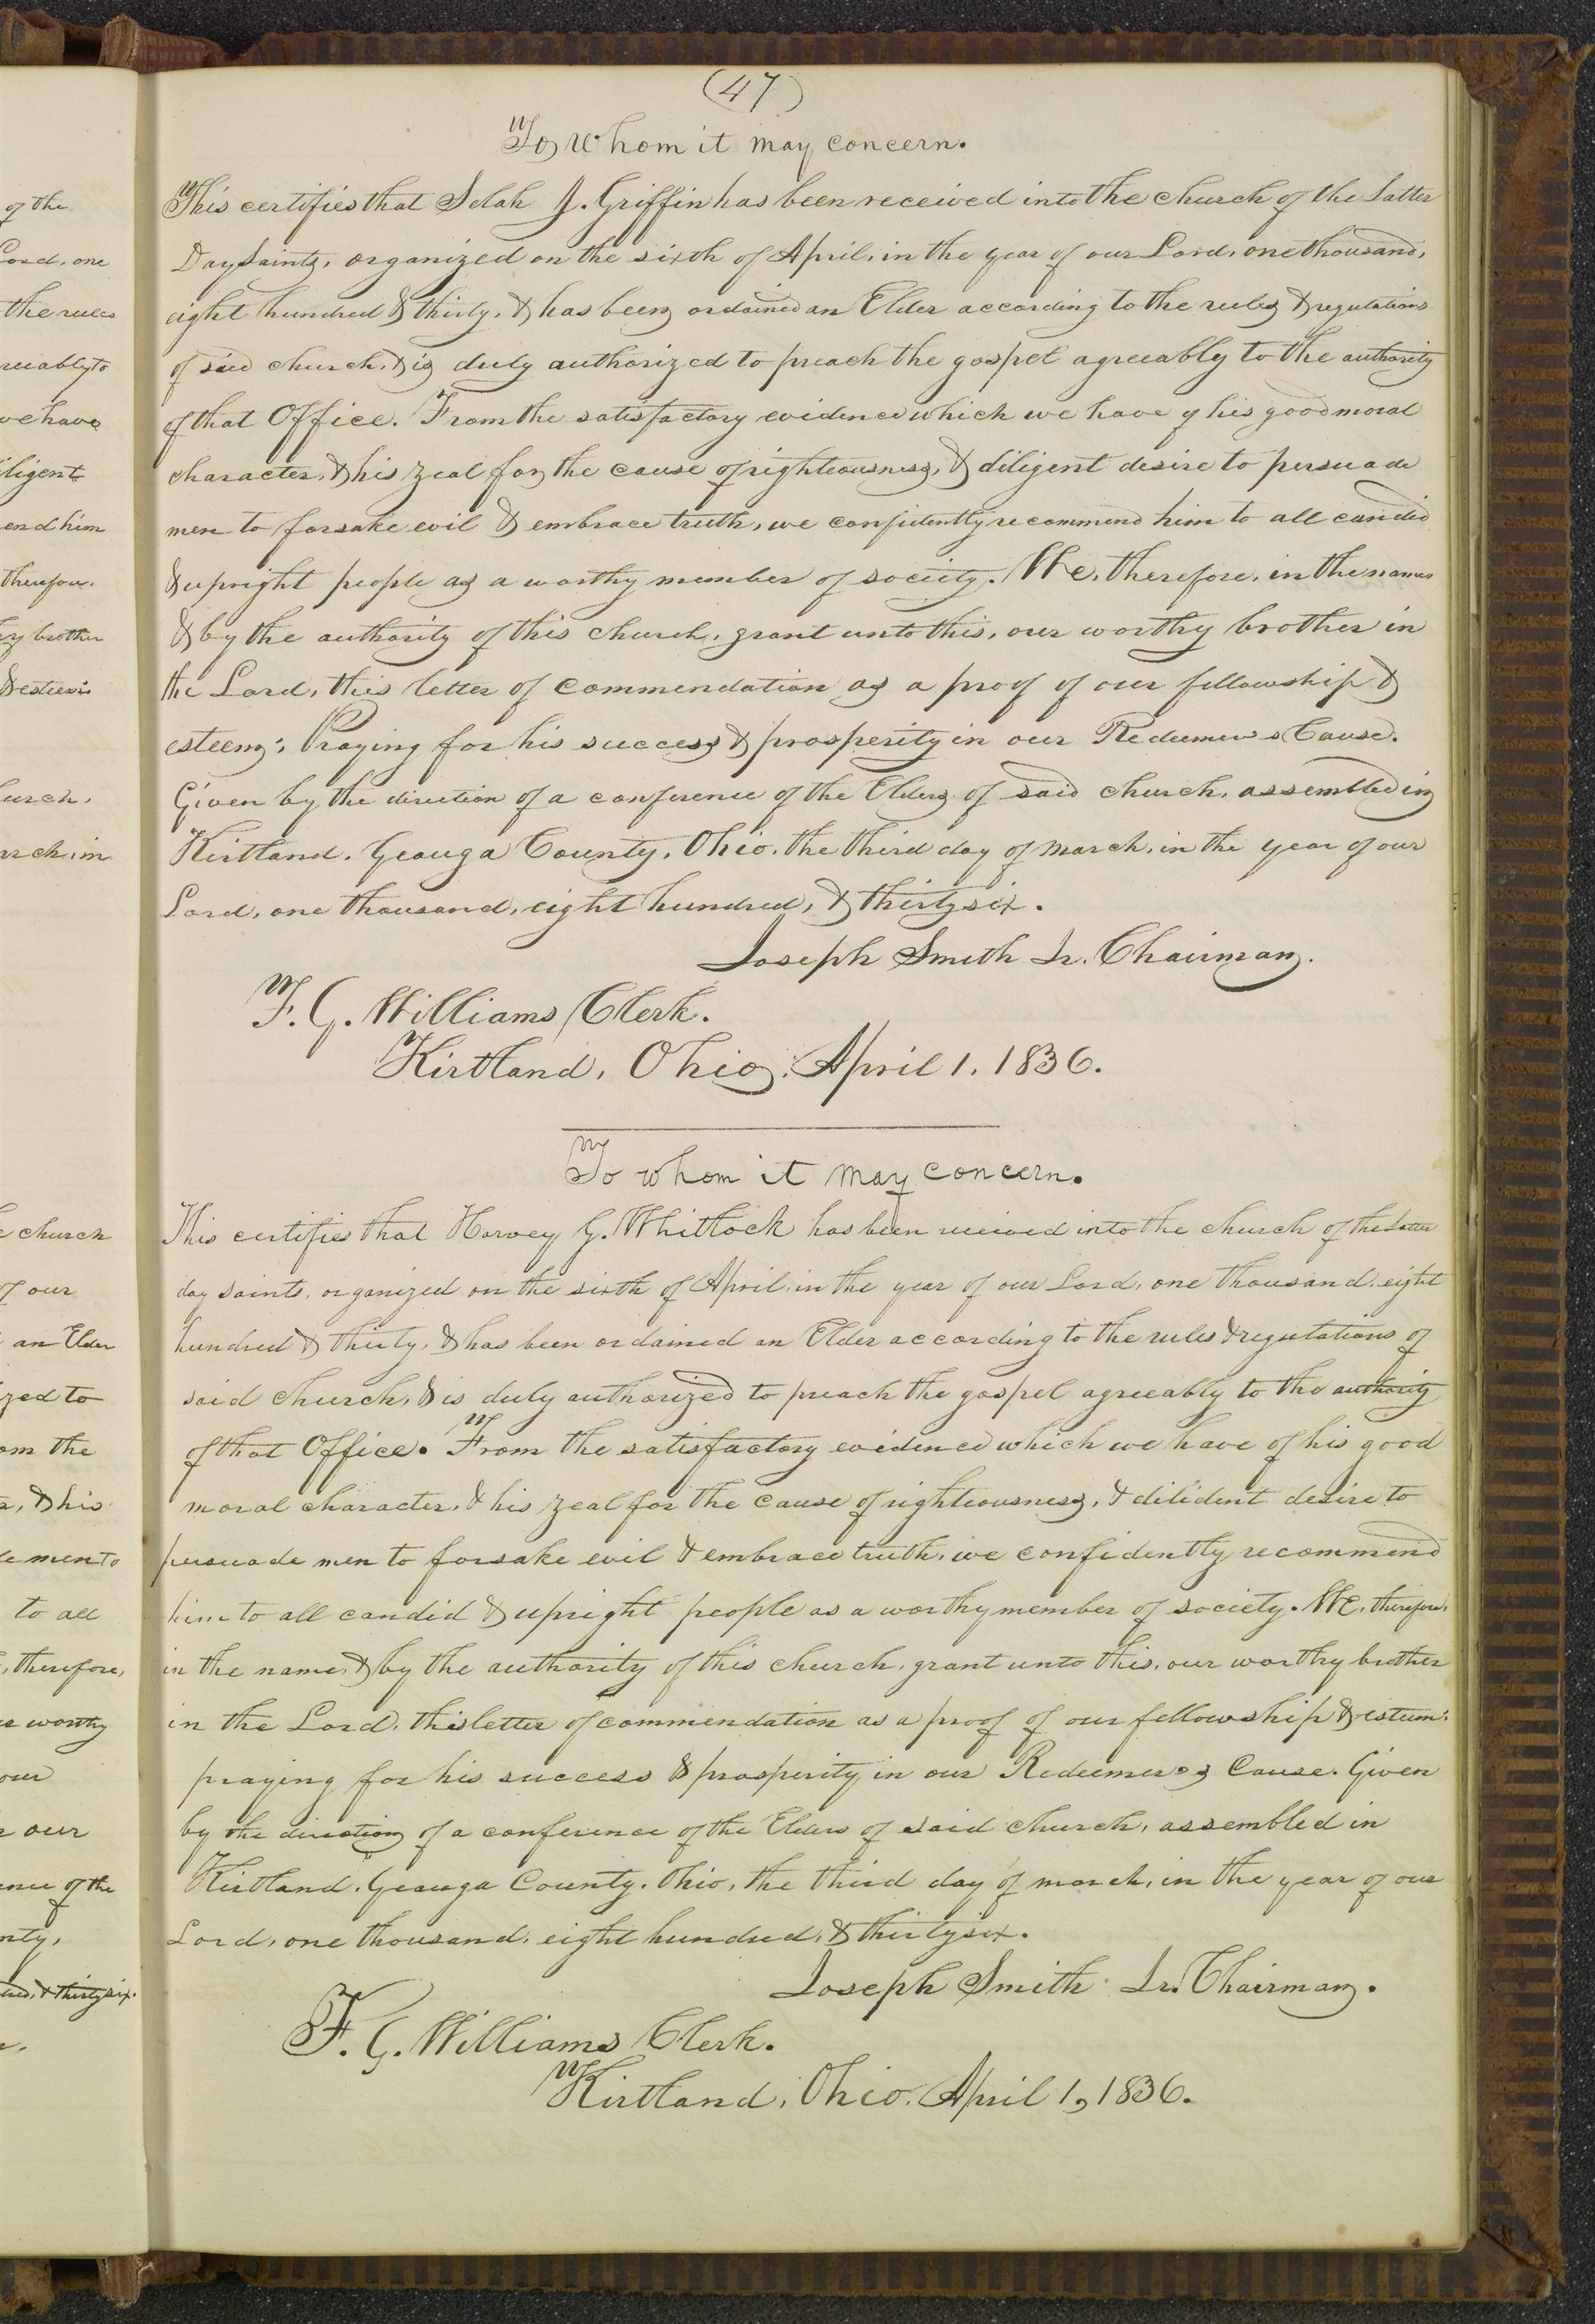 (47)
To whom it may concern.
This certifies that Selah J. Griffin has been received into the church of the Latter
Day Saints, organized on the sixth of April, in the year of our Lord, one thousand,
eight hundred & thirty, & has been ordained an Elder according to the rules & regulations
of said church, & is duly authorized to preach the gospel agreeably to the authority
of that Office. From the satisfactory evidence which we have of his good moral
character, & his zeal for the cause of righteousness, & diligent desire to persuade
men to forsake evil & embrace truth, we confidently recommend him to all candid
& upright people as a worthy member of society. We, therefore, in the name
& by the authority of this church, grant unto this, our worthy brother in
the Lord, this letter of commendation as a proof of our fellowship &
esteem; Praying for his success & prosperity in our Redeemers Cause.
Given by the direction of a conference of the Elders of said church, assembled in
Kirtland, Geauga County, Ohio, the third day of march, in the year of our
Lord, one thousand, eight hundred, & thirty six.
Joseph Smith Jr. Chairman.
F. G. Williams Clerk.
Kirtland, Ohio, April 1, 1836.
To whom it may concern.
This certifies that Harvey G. Whitlock has been received into the church of the Latter
day saints, organized on the sixth of April, in the year of our Lord, one thousand, eight
hundred & thirty, & has been ordained an Elder according to the rules & regulations of
said church, & is duly authorized to preach the gospel agreeably to the authority
of that Office. From the satisfactory evidence which we have of his good
moral character, & his zeal for the cause of righteousness, & dilident desire to
persuade men to forsake evil & embrace truth, we confidently recommend
him to all candid & upright people as a worthy member of society. We, therefore,
in the name, & by the authority of this church, grant unto this, our worthy brother
in the Lord, this letter of commendation as a proof of our fellowship & esteem:
praying for his success & prosperity in our Redeemer's Cause. Given
by the direction of a conference of the Elders of said church, assembled in
Kirtland, Geauga County, Ohio, the third day of march, in the year of our
Lord, one thousand, eight hundred, & thirty six.
Joseph Smith Jr. Chairman.
F. G. Williams Clerk.
Kirtland, Ohio, April 1, 1836.